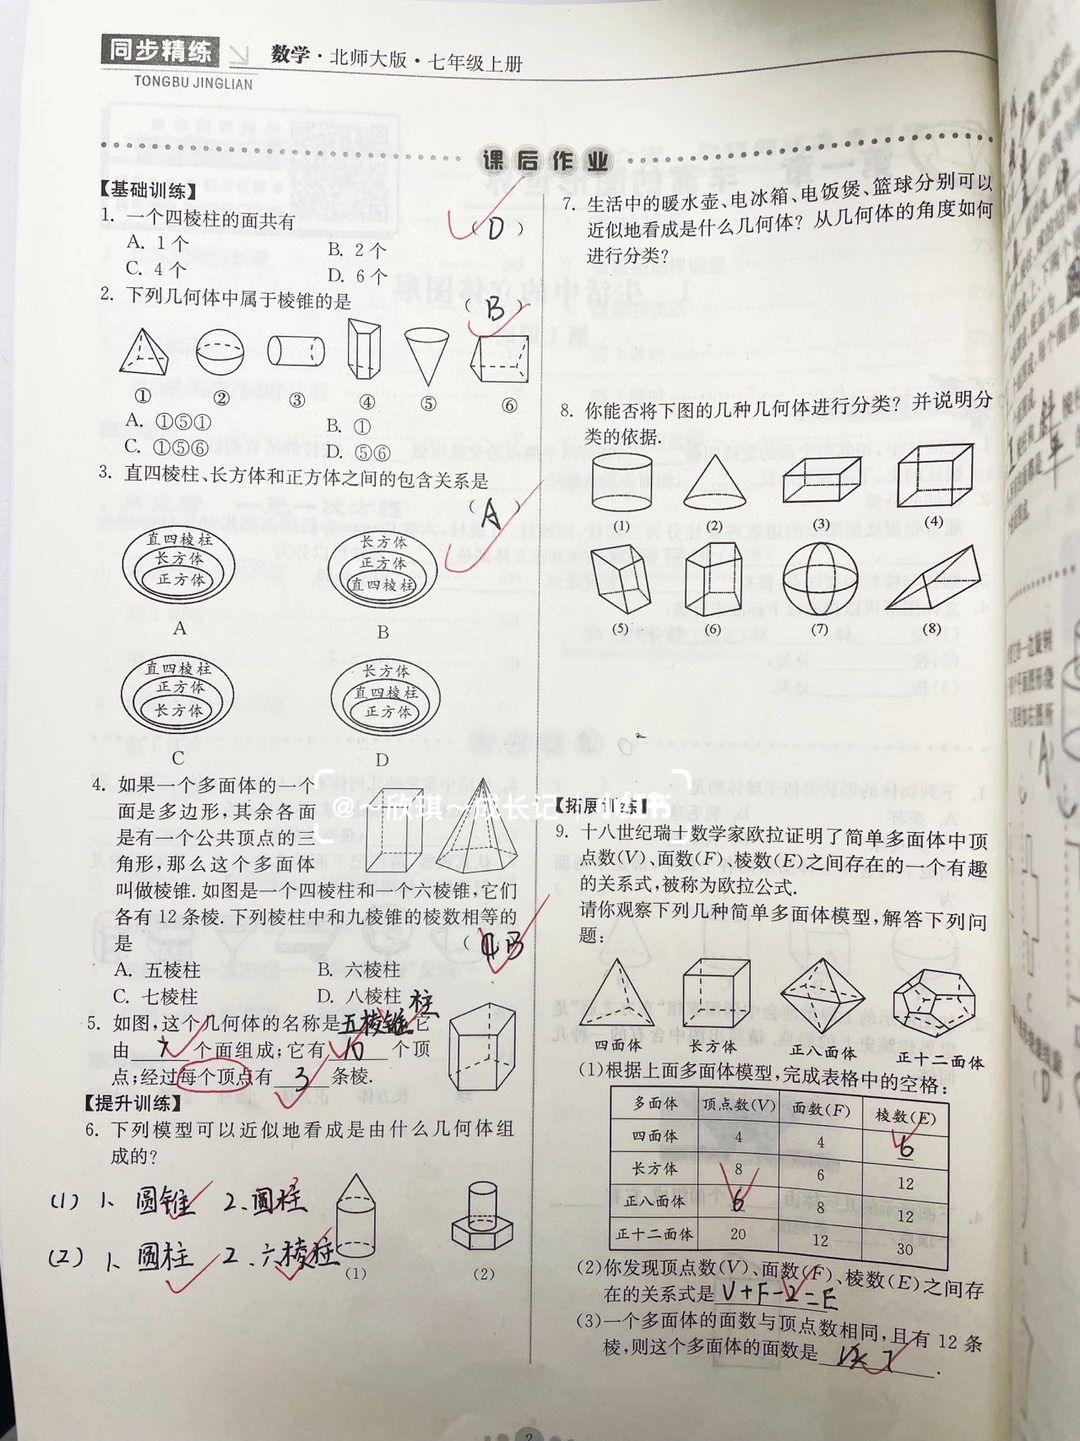 同步精练
数学·北师大版·七年级上册
TONGBU JINGLIAN
课后作业
【基础训练】
1. 一个四棱柱的面共有 ( D )
A. 1个 B. 2个
C. 4个 D. 6个
2. 下列几何体中属于棱锥的是 ( B )
① ② ③ ④ ⑤ ⑥
A. ①⑤① B. ①
C. ①⑤⑥ D. ⑤⑥
3. 直四棱柱、长方体和正方体之间的包含关系是
( A )
直四棱柱
长方体
正方体
A
长方体
正方体
直四棱柱
B
直四棱柱
正方体
长方体
C
长方体
直四棱柱
正方体
D
4. 如果一个多面体的一个
面是多边形,其余各面
是有一个公共顶点的三
角形,那么这个多面体
叫做棱锥.如图是一个四棱柱和一个六棱锥,它们
各有12条棱.下列棱柱中和九棱锥的棱数相等的
是 ( B
A. 五棱柱 B. 六棱柱
C. 七棱柱 D. 八棱柱
柱
5. 如图,这个几何体的名称是五棱锥它
由 7 个面组成;它有 10 个顶
点;经过每个顶点有 3 条棱.
【提升训练】
6. 下列模型可以近似地看成是由什么几何体组
成的?
(1) 1、圆锥 2.圆柱
(2) 1、圆柱 2、六棱柱
(1) (2)
7. 生活中的暖水壶、电冰箱、电饭煲、篮球分别可以
近似地看成是什么几何体?从几何体的角度如何
进行分类?
8. 你能否将下图的几种几何体进行分类?并说明分
类的依据.
(1) (2) (3) (4)
(5) (6) (7) (8)
【拓展训练】
9. 十八世纪瑞士数学家欧拉证明了简单多面体中顶
点数(V)、面数(F)、棱数(E)之间存在的一个有趣
的关系式,被称为欧拉公式.
请你观察下列几种简单多面体模型,解答下列问
题:
四面体 长方体 正八面体 正十二面体
(1)根据上面多面体模型,完成表格中的空格:
多面体 顶点数(V) 面数(F) 棱数(E)
四面体 4 4 6
长方体 8 6 12
正八面体 6 8 12
正十二面体 20 12 30
(2)你发现顶点数(V)、面数(F)、棱数(E)之间存
在的关系式是 V+F-2=E
(3)一个多面体的面数与顶点数相同,且有12条
棱,则这个多面体的面数是 7 .
@~欣琪~成长记 小红书
2